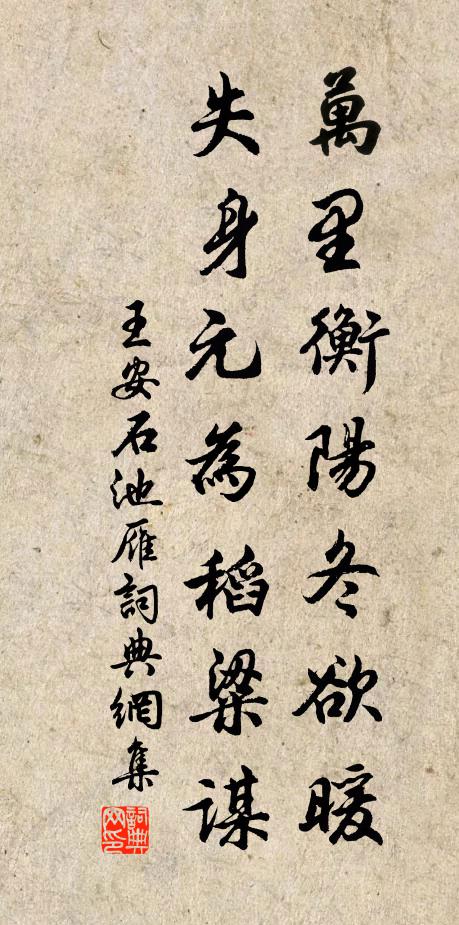 萬里衡陽冬欲暖
失身元為稻粱謀
王安石池雁詞典網集
詞典網印